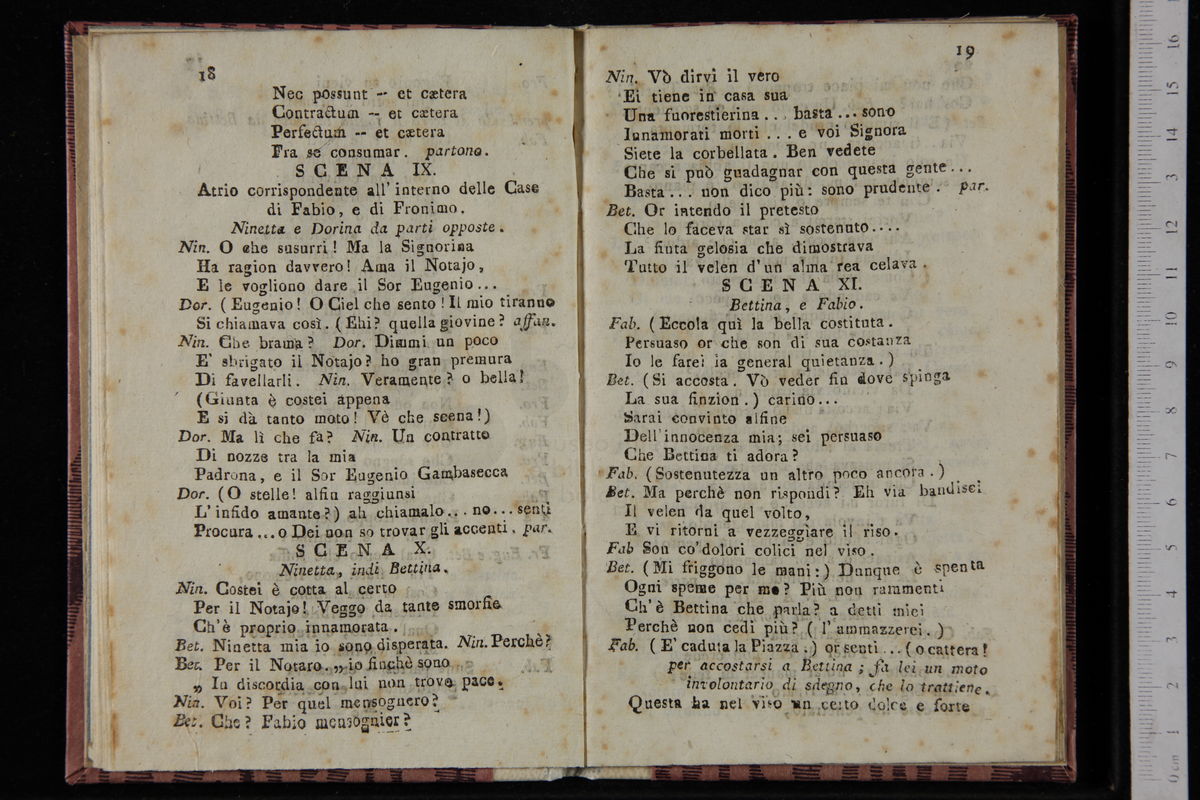 18
Nec possunt -- et cætera
Contractum -- et cætera
Perfectum -- et cætera
Fra se consumar. partono.
SCENA IX.
Atrio corrispondente all' interno delle Case
di Fabio, e di Fronimo.
Ninetta e Dorina da parti opposte.
Nin. O che susurri! Ma la Signorina
Ha ragion davvero! Ama il Notajo,
E le vogliono dare il Sor Eugenio...
Dor. (Eugenio! O Ciel che sento! Il mio tiranno
Si chiamava così. (Ehi? quella giovine? affan.
Nin. Che brama? Dor. Dimmi un poco
E' sbrigato il Notajo? ho gran premura
Di favellarli. Nin. Veramente? o bella!
(Giunta è costei appena
E si dà tanto moto! Vè che scena!)
Dor. Ma lì che fa? Nin. Un contratto
Di nozze tra la mia
Padrona, e il Sor Eugenio Gambasecca
Dor. (O stelle! alfin raggiunsi
L' infido amante?) ah chiamalo... no... senti
Procura... o Dei non so trovar gli accenti. par.
SCENA X.
Ninetta, indi Bettina.
Nin. Costei è cotta al certo
Per il Notajo! Veggo da tante smorfie
Ch'è proprio innamorata.
Bet. Ninetta mia io sono disperata. Nin. Perchè?
Bet. Per il Notaro. „ io finchè sono
„ In discordia con lui non trovo pace.
Nin. Voi? Per quel mensognero?
Bet. Che? Fabio mensognier?
19
Nin. Vò dirvi il vero
Ei tiene in casa sua
Una fuorestierina... basta... sono
Innamorati morti... e voi Signora
Siete la corbellata. Ben vedete
Che si può guadagnar con questa gente...
Basta... non dico più: sono prudente. par.
Bet. Or intendo il pretesto
Che lo faceva star sì sostenuto....
La finta gelosia che dimostrava
Tutto il velen d'un alma rea celava.
SCENA XI.
Bettina, e Fabio.
Fab. (Eccola quì la bella costituta.
Persuaso or che son di sua costanza
Io le farei la general quietanza.)
Bet. (Si accosta. Vò veder fin dove spinga
La sua finzion.) carino...
Sarai convinto alfine
Dell'innocenza mia; sei persuaso
Che Bettina ti adora?
Fab. (Sostenutezza un altro poco ancora.)
Bet. Ma perchè non rispondi? Eh via bandisci
Il velen da quel volto,
E vi ritorni a vezzeggiare il riso.
Fab Son co' dolori colici nel viso.
Bet. (Mi friggono le mani:) Dunque è spenta
Ogni speme per me? Più non rammenti
Ch'è Bettina che parla? a detti miei
Perchè non cedi più? (l'ammazzerei.)
Fab. (E' caduta la Piazza.) or senti... (o cattera!
per accostarsi a Bettina; fa lei un moto
involontario di sdegno, che lo trattiene.
Questa ha nel viso un certo dolce e forte
0 cm 1 2 3 4 5 6 7 8 9 10 11 12 13 14 15 16